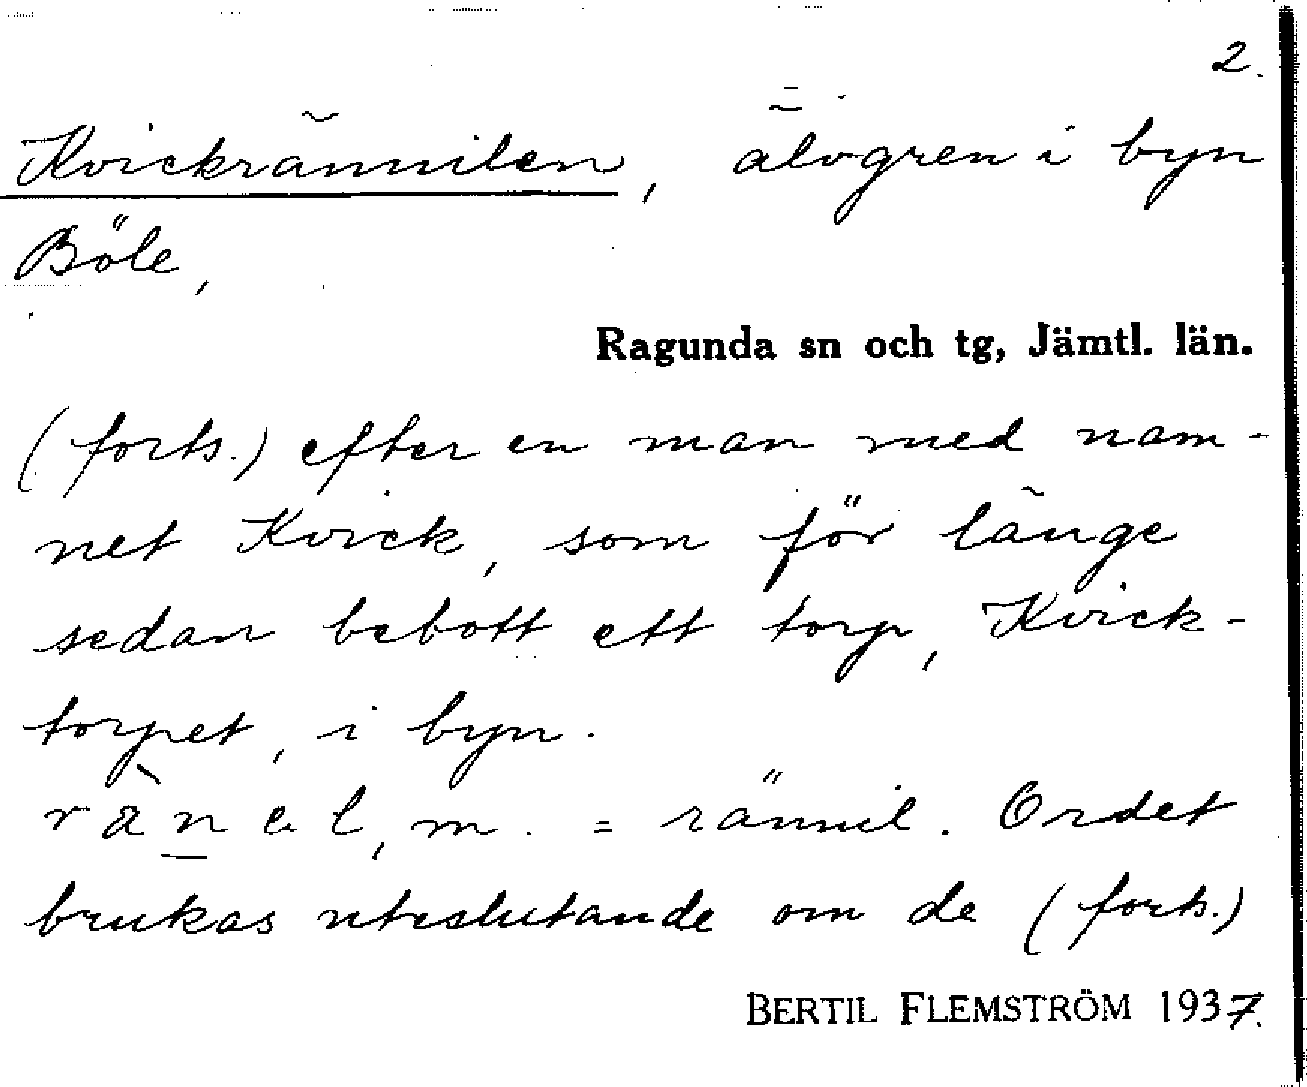 2.
Kvickrännilen, älvgren i byn
Böle,
Ragunda sn och tg, Jämtl. län.
(forts.) efter en man med nam-
net Kvick, som för länge
sedan bebott ett torp, Kvick-
torpet, i byn.
m. = rännil. Ordet
brukas uteslutande om de (forts.)
BERTIL FLEMSTRÖM 1937.